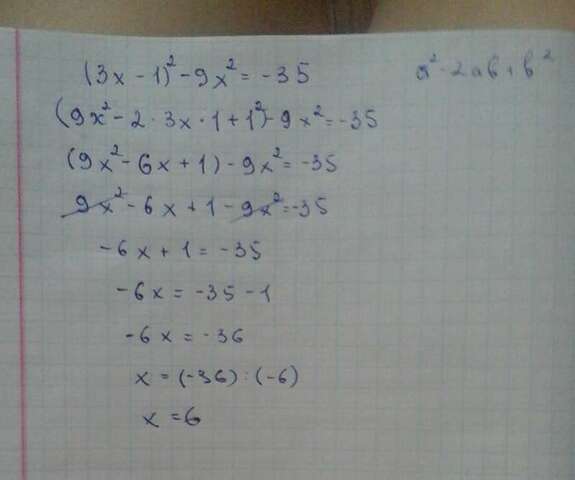 (3x - 1)² - 9x² = -35
a² - 2ab + b²
(9x² - 2 · 3x · 1 + 1²) - 9x² = -35
(9x² - 6x + 1) - 9x² = -35
9x² - 6x + 1 - 9x² = -35
-6x + 1 = -35
-6x = -35 - 1
-6x = -36
x = (-36) : (-6)
x = 6